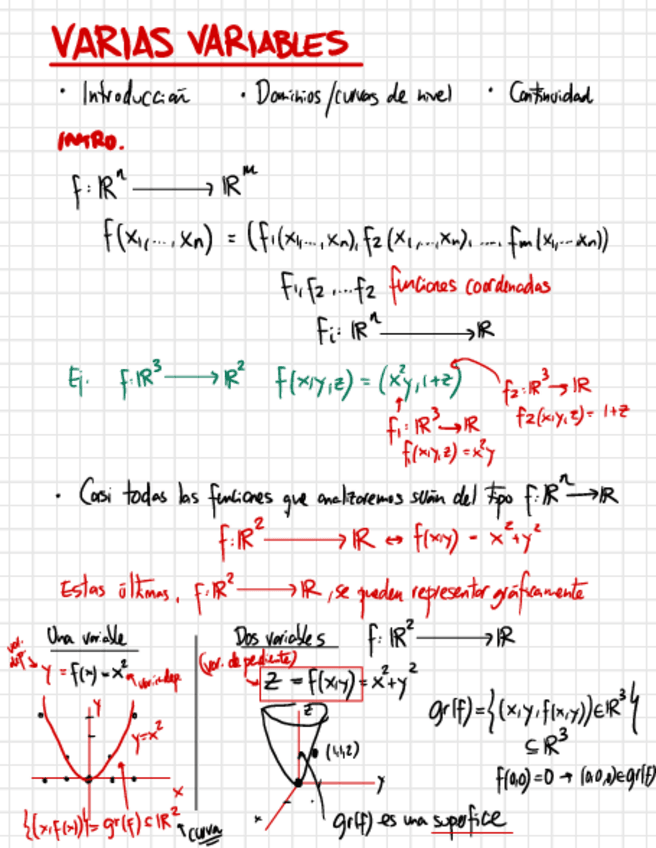 VARIAS VARIABLES
· Introducción · Dominios/curvas de nivel · Continuidad
INTRO.
f: ℝⁿ ⟶ ℝᵐ
f(x₁,...,xₙ) = (f₁(x₁,...,xₙ), f₂(x₁,...,xₙ), ..., fₘ(x₁,...xₙ))
F₁, f₂, ...f₂ funciones coordenadas
Fᵢ: ℝⁿ ⟶ ℝ
Ej. f: ℝ³ ⟶ ℝ² f(x,y,z) = (x²y, 1+z)
f₂: ℝ³ → ℝ
f₂(x,y,z) = 1+z
f₁: ℝ³ → ℝ
f₁(x,y,z) = x²y
· Casi todas las funciones que analizaremos serán del tipo f: ℝⁿ → ℝ
f: ℝ² ⟶ ℝ ↔ f(x,y) = x²+y²
Estas últimas, f: ℝ² ⟶ ℝ, se pueden representar gráficamente
Una variable
var. dep → y = f(x) = x² var. indep
y
y=x²
x
{(x,f(x))} = gr(f) ⊂ ℝ² ↑ curva
Dos variables f: ℝ² ⟶ ℝ
(var. dependiente)
z = f(x,y) = x²+y²
z
(1,1,2)
y
x
gr(f) = {(x,y,f(x,y)) ∈ ℝ³}
⊆ ℝ³
f(0,0)=0 → (0,0,0) ∈ gr(f)
gr(f) es una superfice